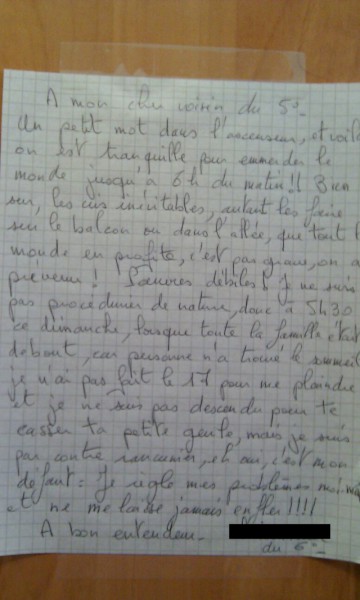 A mon cher voisin du 5e
Un petit mot dans l'ascenseur, et voilà
on est tranquille pour emmerder le
monde jusqu'à 6h du matin!! Bien
sur, les cris inévitables, autant les faire
sur le balcon ou dans l'allée, que tout l
monde en profite, c'est pas grave, on a
prévenu! Pauvres débiles! Je ne suis
pas procédurier de nature, donc à 5h30
ce dimanche, lorsque toute la famille était
debout, car personne n'a trouvé le sommeil
je n'ai pas fait le 17 pour me plaindre
et je ne suis pas descendu pour te
casser ta petite gueule, mais je suis
par contre rancunier, et oui, c'est mon
défaut: Je règle mes problèmes moi-mê
et ne me laisse jamais enfler!!!!
A bon entendeur-
du 6e